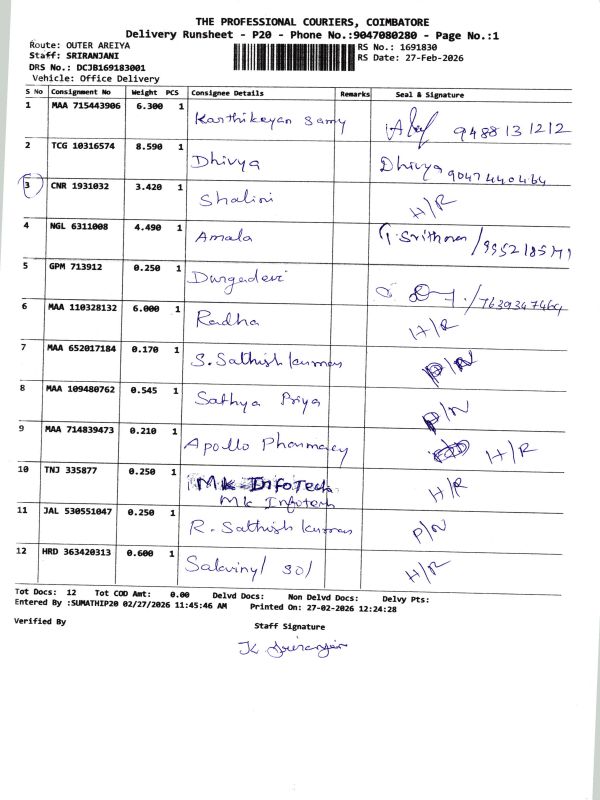 THE PROFESSIONAL COURIERS, COIMBATORE
Delivery Runsheet - P20 - Phone No.:9047080280 - Page No.:1
Route: OUTER AREIYA RS No.: 1691830
Staff: SRIRANJANI RS Date: 27-Feb-2026
DRS No.: DCJB169183001
Vehicle: Office Delivery
S No Consignment No Weight PCS Consignee Details Remarks Seal & Signature
1 MAA 715443906 6.300 1 Karthikeyan Samy 9488131212
2 TCG 10316574 8.590 1 Dhivya Dhivya 9047440464
3 CNR 1931032 3.420 1 Shalini H/R
4 NGL 6311008 4.490 1 Amala
5 GPM 713912 0.250 1 Durgadevi /7639347464
6 MAA 110328132 6.000 1 Radha H/R
7 MAA 652017184 0.170 1 S. Sathish kumar P/N
8 MAA 109480762 0.545 1 Sathya Priya P/N
9 MAA 714839473 0.210 1 Apollo Pharmacy H/R
10 TNJ 335877 0.250 1 Mk InfoTech H/R
Mk Infotech
11 JAL 530551047 0.250 1 R. Sathish kumar P/N
12 HRD 363420313 0.600 1 H/R
Tot Docs: 12 Tot COD Amt: 0.00 Delvd Docs: Non Delvd Docs: Delvy Pts:
Entered By :SUMATHIP20 02/27/2026 11:45:46 AM Printed On: 27-02-2026 12:24:28
Verified By Staff Signature